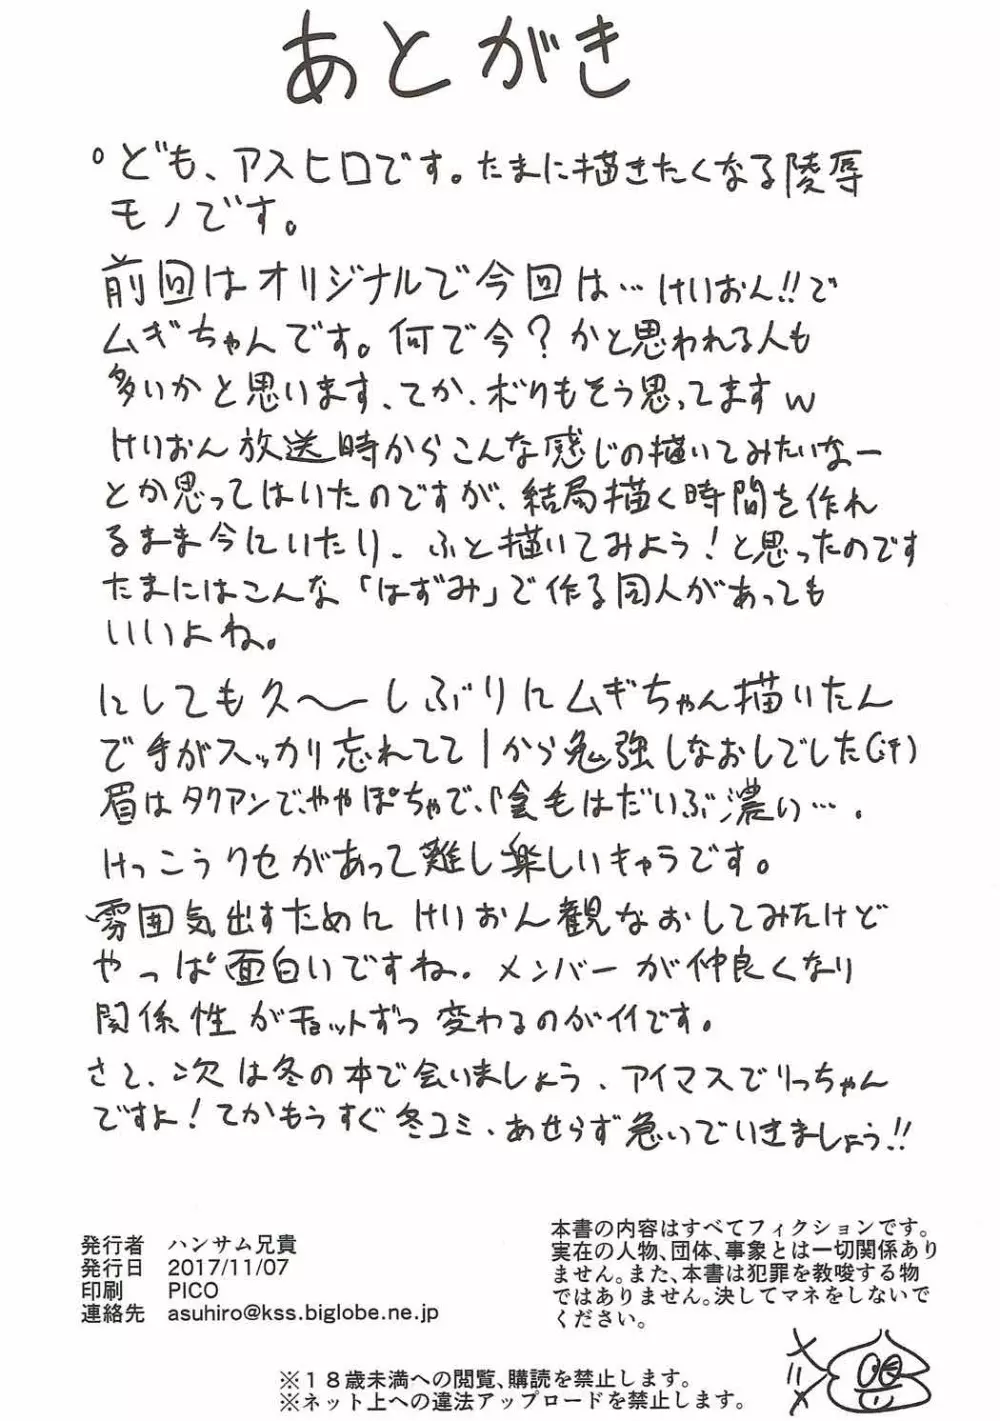 あとがき
。ども、アスヒロです。たまに描きたくなる陵辱
モノです。
前回はオリジナルで今回は…けいおん!!で
ムギちゃんです。何で今?かと思われる人も
多いかと思います、てか、ボクもそう思ってますw
けいおん放送時からこんな感じの描いてみたいなー
とか思ってはいたのですが、結局描く時間を作れ
るまま今にいたり、ふと描いてみよう!と思ったのです
たまにはこんな「はずみ」で作る同人があっても
いいよね。
にしても久〜しぶりにムギちゃん描いたん
で手がスッカリ忘れてて1から勉強しなおしでした(汗)
眉はタクアンで、ややぽちゃで、陰毛はだいぶ濃い…。
けっこうクセがあって難し楽しいキャラです。
雰囲気出すためにけいおん観なおしてみたけど
やっぱ面白いですね。メンバーが仲良くなり
関係性がチョットずつ変わるのがイイです。
さて、次は冬の本で会いましょう、アイマスでりっちゃん
ですよ!てかもうすぐ冬コミ、あせらず急いでいきましょう!!
発行者 ハンサム兄貴
発行日 2017/11/07
印刷 PICO
連絡先 asuhiro@kss.biglobe.ne.jp
本書の内容はすべてフィクションです。
実在の人物、団体、事象とは一切関係あり
ません。また、本書は犯罪を教唆する物
ではありません。決してマネをしないで
ください。
※18歳未満への閲覧、購読を禁止します。
※ネット上への違法アップロードを禁止します。